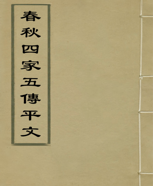 春秋四家五傳平文